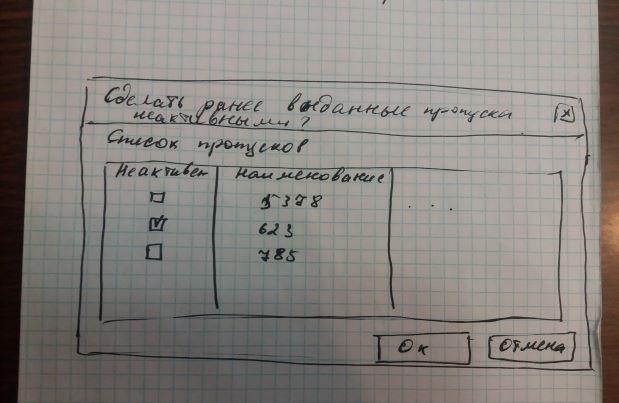 Сделать ранее выданные пропуска
неактивными?
X
Список пропусков
Неактивен Наименование
5378 . . .
623
785
Ок Отмена